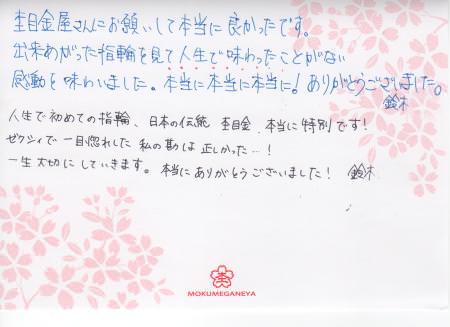 杢目金屋さんにお願いして本当に良かったです。
出来あがった指輪を見て人生で味わったことがない
感動を味わいました。本当に本当に本当に!ありがとうございました。
鈴木
人生で初めての指輪、日本の伝統 杢目金 本当に特別です!
ゼクシィで一目惚れした 私の勘は正しかった…!
一生大切にしていきます。本当にありがとうございました! 鈴木
杢
MOKUMEGANEYA